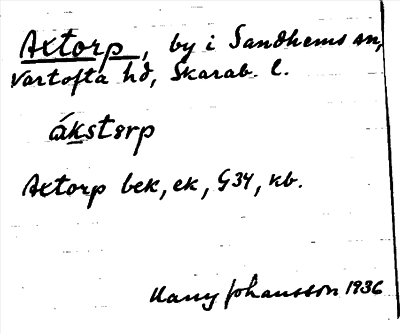 Axtorp, by i Sandhems sn,
Vartofta hd, Skarab. l.
ákstɘrp
Axtorp bek, ek, G34, kb.
Harry Johansson 1936